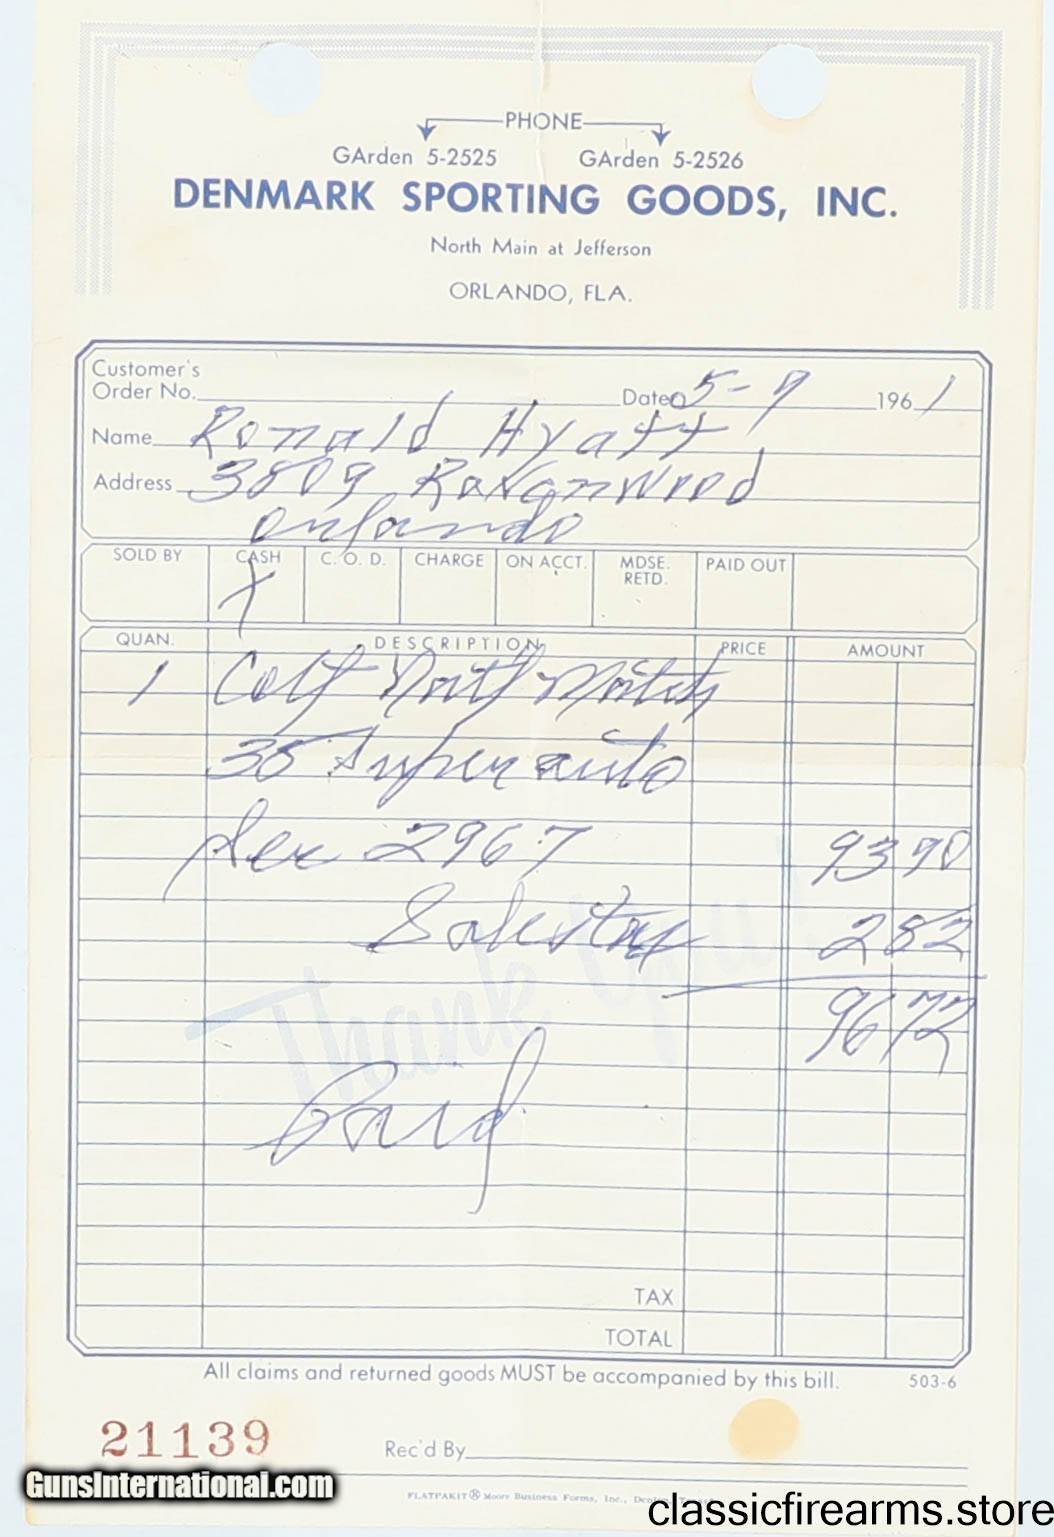 PHONE
GArden 5-2525 GArden 5-2526
DENMARK SPORTING GOODS, INC.
North Main at Jefferson
ORLANDO, FLA.
Customer's
Order No. Date 5-9 1961
Name Ronald Hyatt
Address 3809
Orlando
SOLD BY CASH C. O. D. CHARGE ON ACCT. MDSE. RETD. PAID OUT
X
QUAN. DESCRIPTION PRICE AMOUNT
1 Colt
38 Super auto
Ser 2967 93 90
Sales tax 2 82
96 72
Thank You!
Paid
TAX
TOTAL
All claims and returned goods MUST be accompanied by this bill. 503-6
21139 Rec'd By
GunsInternational.com
FLATPAKIT® Moore Business Forms, Inc.,
classicfirearms.store